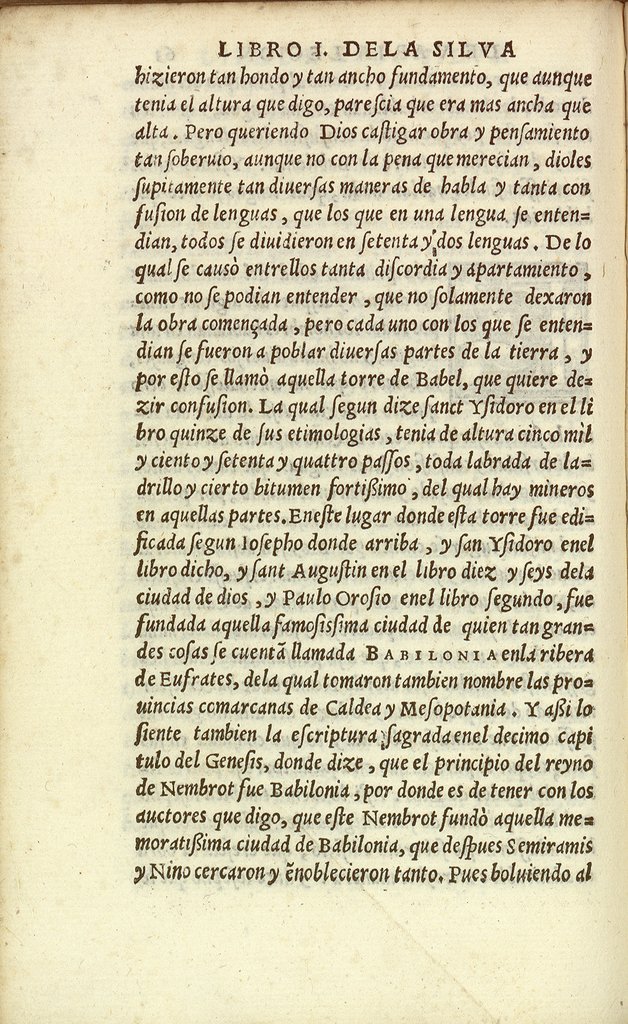 LIBRO I. DELA SILVA
hizieron tan hondo y tan ancho fundamento, que aunque
tenia el altura que digo, parescia que era mas ancha que
alta. Pero queriendo Dios caſtigar obra y penſamiento
tan ſoberuio, aunque no con la pena que merecian, dioles
ſupitamente tan diuerſas maneras de habla y tanta con
fuſion de lenguas, que los que en una lengua ſe enten=
dian, todos ſe diuidieron en ſetenta y dos lenguas. De lo
qual ſe causò entrellos tanta diſcordia y apartamiento,
como no ſe podian entender, que no ſolamente dexaron
la obra començada, pero cada uno con los que ſe enten=
dian ſe fueron a poblar diuerſas partes de la tierra, y
por eſto ſe llamò aquella torre de Babel, que quiere de=
zir confuſion. La qual ſegun dize ſanct Yſidoro en el li
bro quinze de ſus etimologias, tenia de altura cinco mil
y ciento y ſetenta y quattro paſſos, toda labrada de la=
drillo y cierto bitumen fortißimo, del qual hay mineros
en aquellas partes. Eneſte lugar donde eſta torre fue edi=
ficada ſegun Ioſepho donde arriba, y ſan Yſidoro enel
libro dicho, y ſant Auguſtin en el libro diez y ſeys dela
ciudad de dios, y Paulo Oroſio enel libro ſegundo, fue
fundada aquella famoſiſſima ciudad de quien tan gran=
des coſas ſe cuentã llamada BABILONIA enla ribera
de Eufrates, dela qual tomaron tambien nombre las pro=
uincias comarcanas de Caldea y Meſopotania. Y aßi lo
ſiente tambien la eſcriptura ſagrada enel decimo capi
tulo del Geneſis, donde dize, que el principio del reyno
de Nembrot fue Babilonia, por donde es de tener con los
auctores que digo, que eſte Nembrot fundò aquella me=
moratißima ciudad de Babilonia, que deſpues Semiramis
y Nino cercaron y ẽnoblecieron tanto. Pues boluiendo al